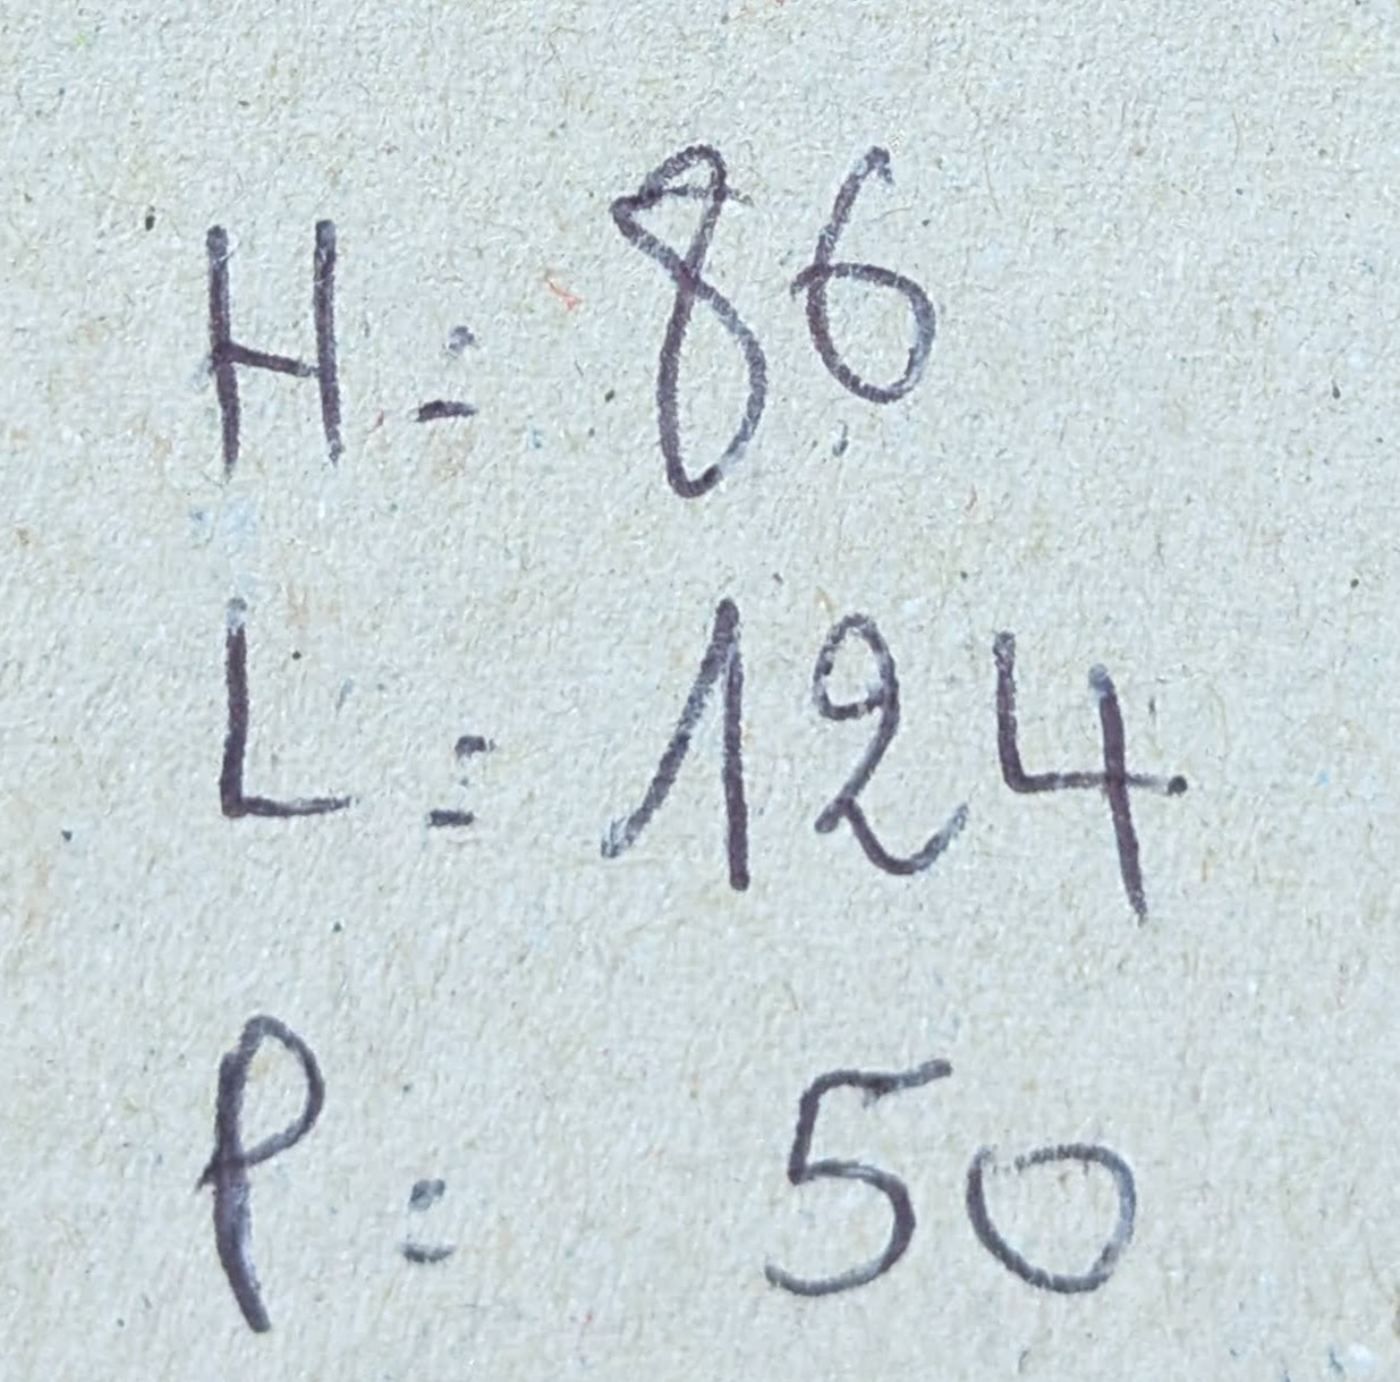 H = 86
L = 124
P = 50